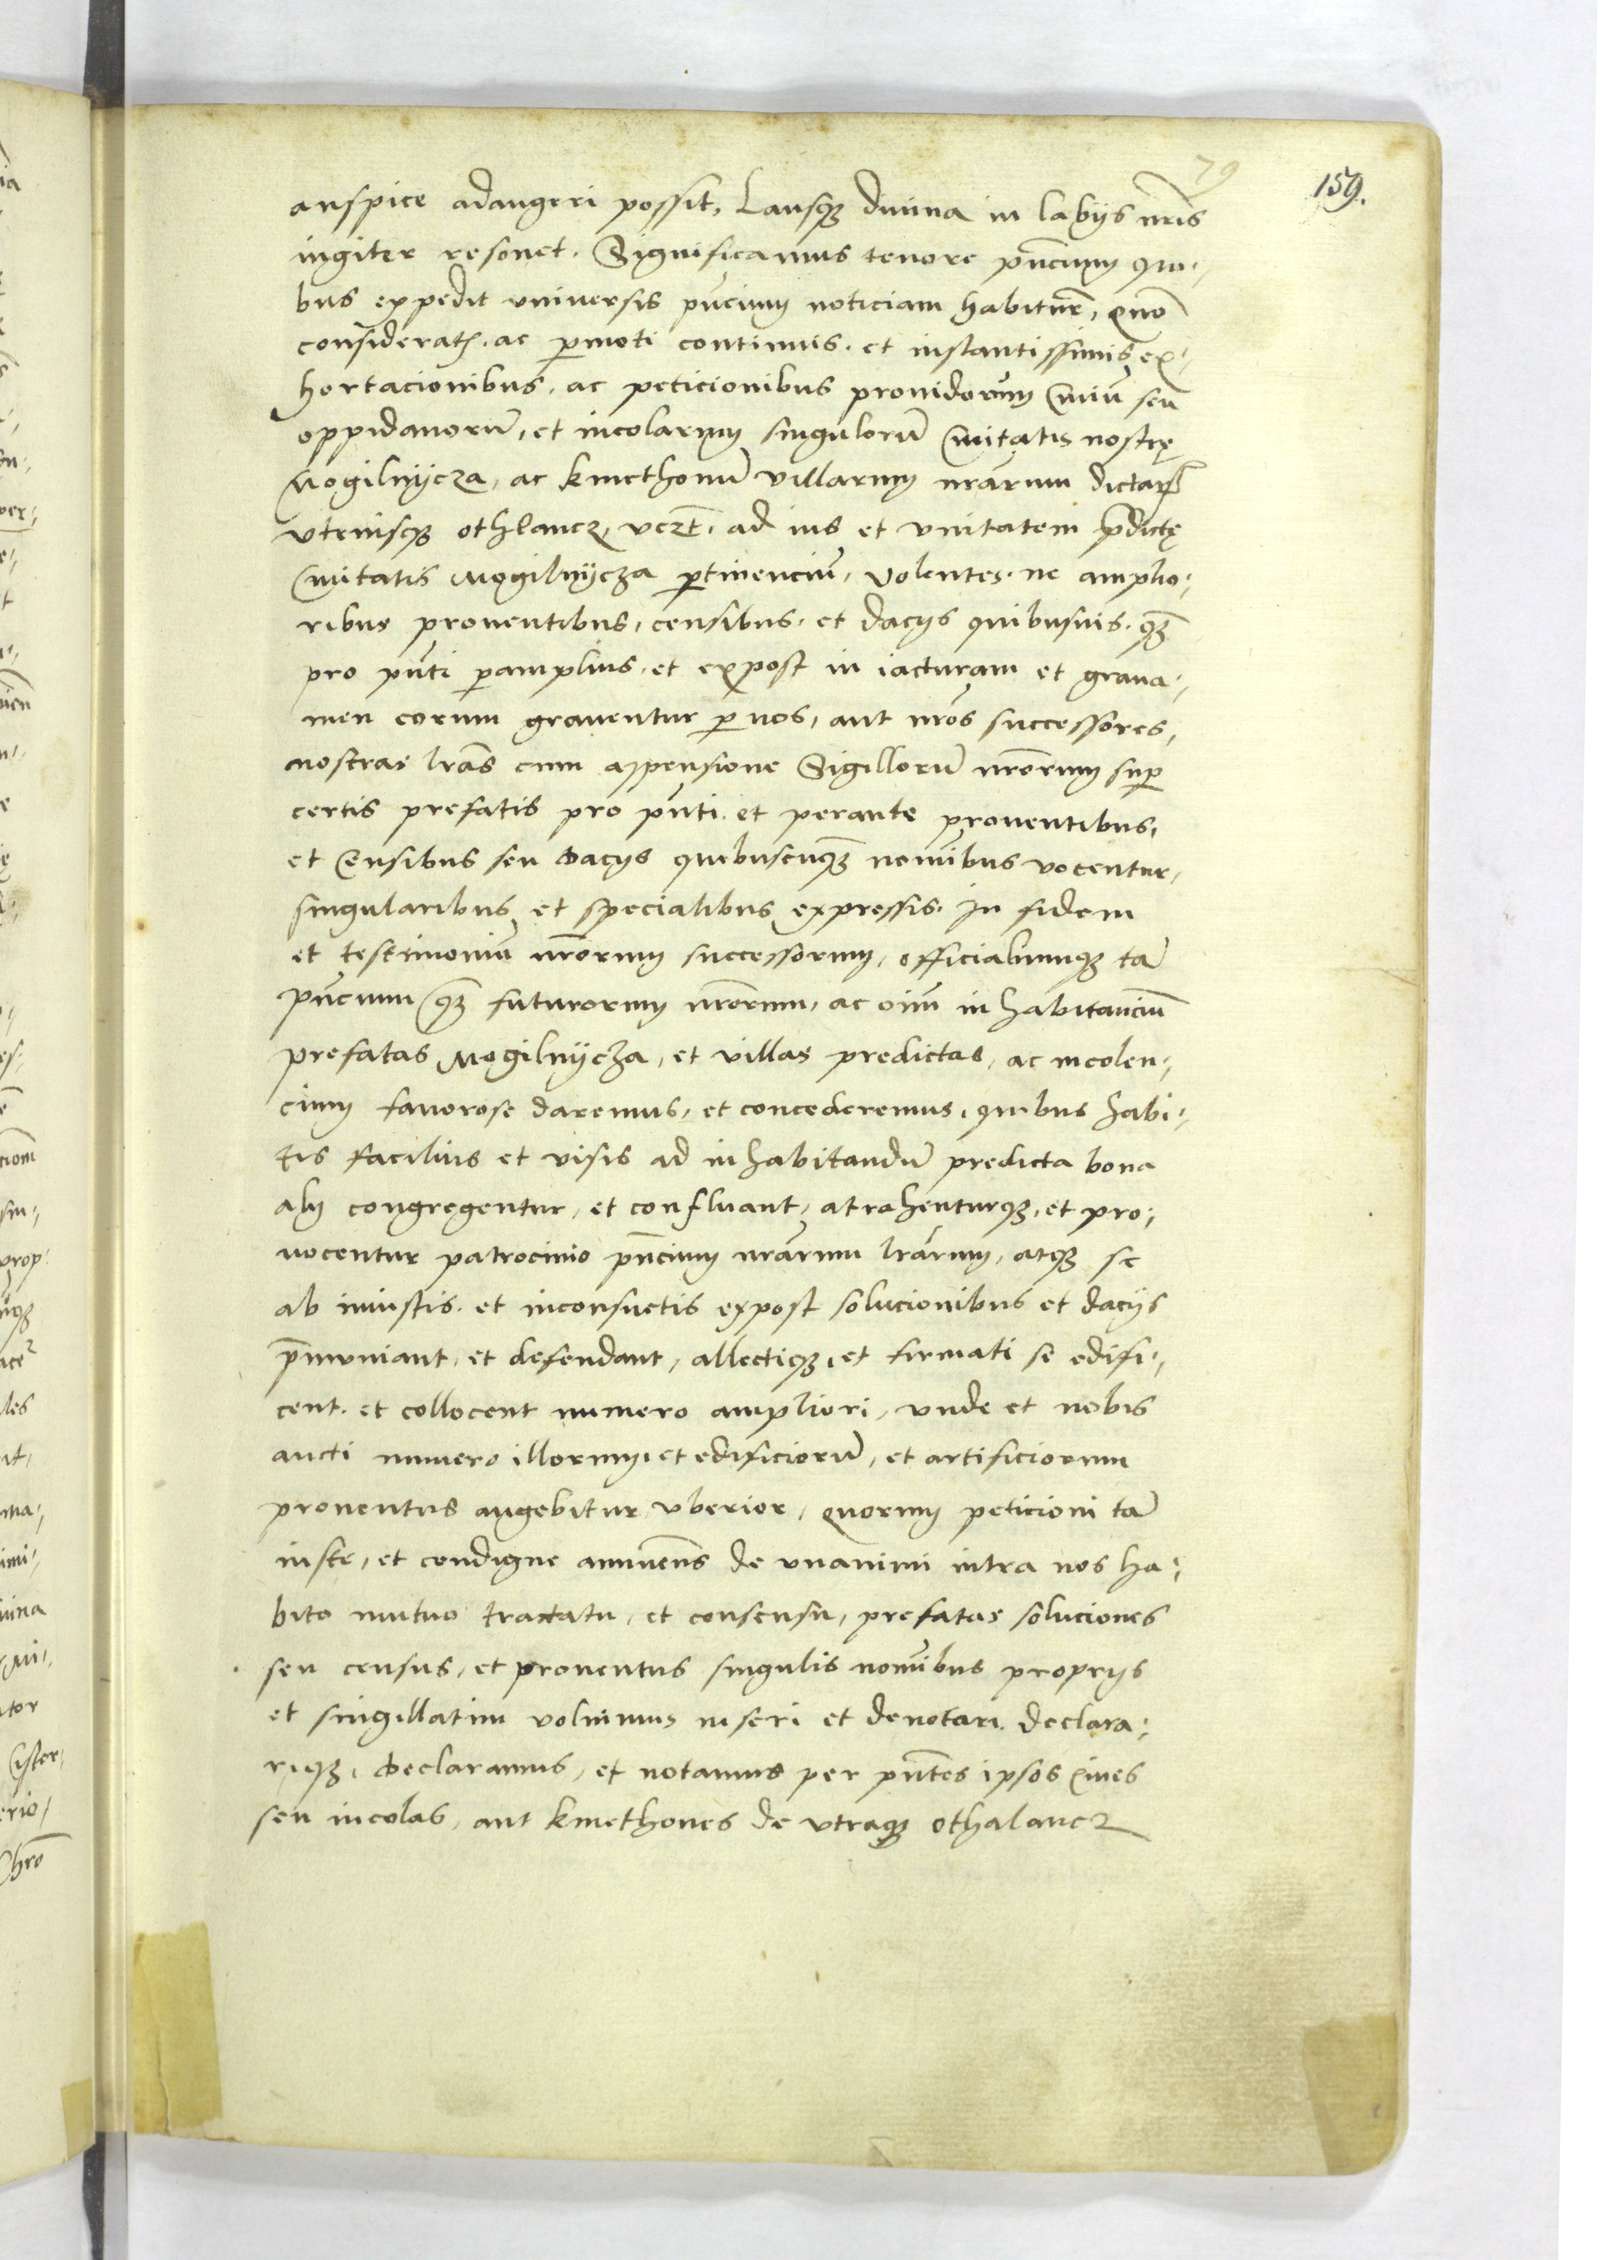 79
159.
auspice adaugeri possit, Lausq₃ diuina in labijs nr̃is
iugiter resonet. Significamus tenore pñcium qui-
bus expedit vniuersis pñcium noticiam habitur̃, Quõ
consideratis. ac p̱moti continuis. et instantissimis ex-
hortacionibus, ac peticionibus prouidorum Ciuiũ seu
oppidanorũ, et incolarum singulorũ Ciuitatis nostrę
Mogilnijcza, ac kmethonũ villarum nr̃arum dictarꝝ
vtriusq₃ othlancz, vczt̃. ad ius et vnitatem p̃dictę
Ciuitatis Mogilnijcza p̱tinenciũ, Volentes. ne amplio-
ribus prouentibus, censibus. et dacijs quibusuis. q₃̃
pro pñti p̱amplius. et expost in iacturam et graua-
men eorum grauentur p̱ nos, aut nr̃os successores,
nostras lr̃as cum appensione Sigillorũ nr̃orum sup̱
certis prefatis pro pñti. et perante prouentibus,
et Censibus seu dacijs quibuscunq₃ nomĩbus vocentur,
singularibus et specialibus expressis. In fidem
et testimoniũ nr̃orum successorum, officialiumq₃ tã
pñcium q₃̃ futurorum nr̃orum, ac oĩm inhabitanciũ
prefatas Mogilnijcza, et villas predictas, ac incolen-
cium fauorose daremus, et concederemus, quibus habi-
tis facilius et visis ad inhabitandũ predicta bona
alij congregentur, et confluant, atrahenturq₃, et pro-
uocentur patrocinio pñcium nr̃arum lr̃arum, atq₃ se
ab iniustis. et inconsuetis expost solucionibus et dacijs
p̃muniant, et defendant, allectiq₃, et firmati se edifi-
cent. et collocent numero ampliori, vnde et nobis
aucti numero illorum, et edificiorũ, et artificiorum
prouentus augebitur vberior, quorum peticioni tã
iuste, et condigne annuẽns de vnanimi intra nos ha-
bito mutuo tractatu, et consensu, prefatas soluciones
seu census, et prouentus singulis nomĩbus proprijs
et singillatim voluimus inseri et denotari. declara-
riq₃, declaramus, et notamus per pñtes ipsos Ciues
seu incolas, aut kmethones de vtraq₃ othalancz